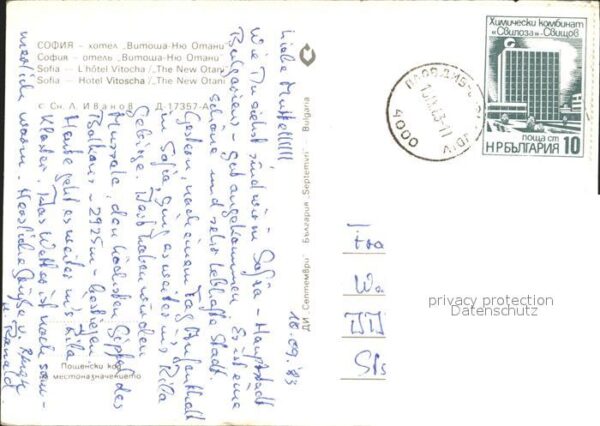 СОФИЯ – хотел „Витоша-Ню Отани"
София – отель „Витоша-Ню Отани"
Sofia – L'hôtel Vitocha /„The New Otani
Sofia – Hotel Vitoscha /„The New Otani
с Сн. Л. Иванов Д-17357-А
Химически комбинат
«Свилоза»-Свищов
поща ст
НР БЪЛГАРИЯ 10
ПЛОВДИВ
4000
ДИ „Септември" България „Septemvri" Bulgaria
16.09.'83
Liebe Mutti!!!!!
Wie Du siehst sind wir in Sofia – Hauptstadt
Bulgariens – gut angekommen. Es ist eine
schöne und sehr lebhafte Stadt.
Gestern, nach einem Tag Aufenthalt
in Sofia, ging es weiter ins Rila
Gebirge. Dort haben wir den
Mussala, den höchsten Gipfel des
Balkans – 2925m – bestiegen.
Heute geht es weiter in's Rila
Kloster. Das Wetter ist noch som-
merlich warm. Herzliche Grüße v.
u. Ronald
Пощенски код
местоназначението
privacy protection
Datenschutz